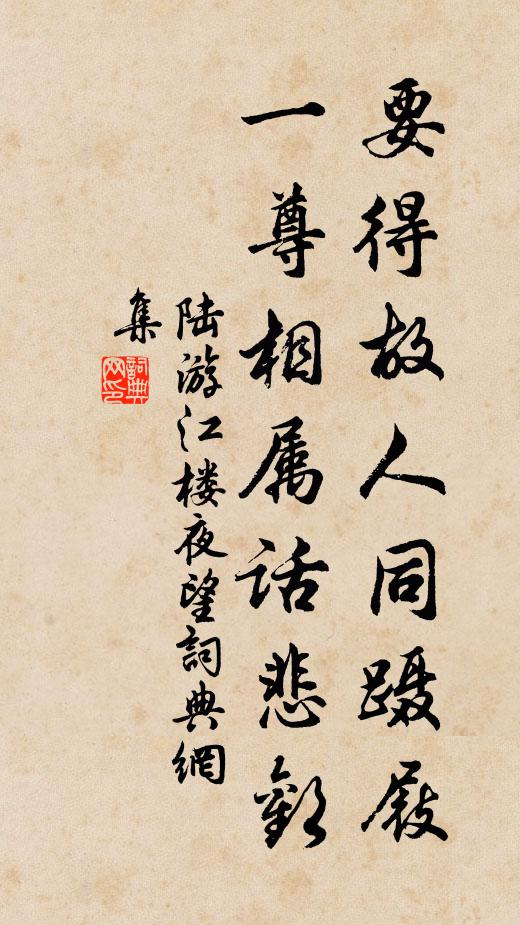 要得故人同蹑屐
一尊相属话悲歡
陆游江楼夜望詞典網
集
詞典
网印